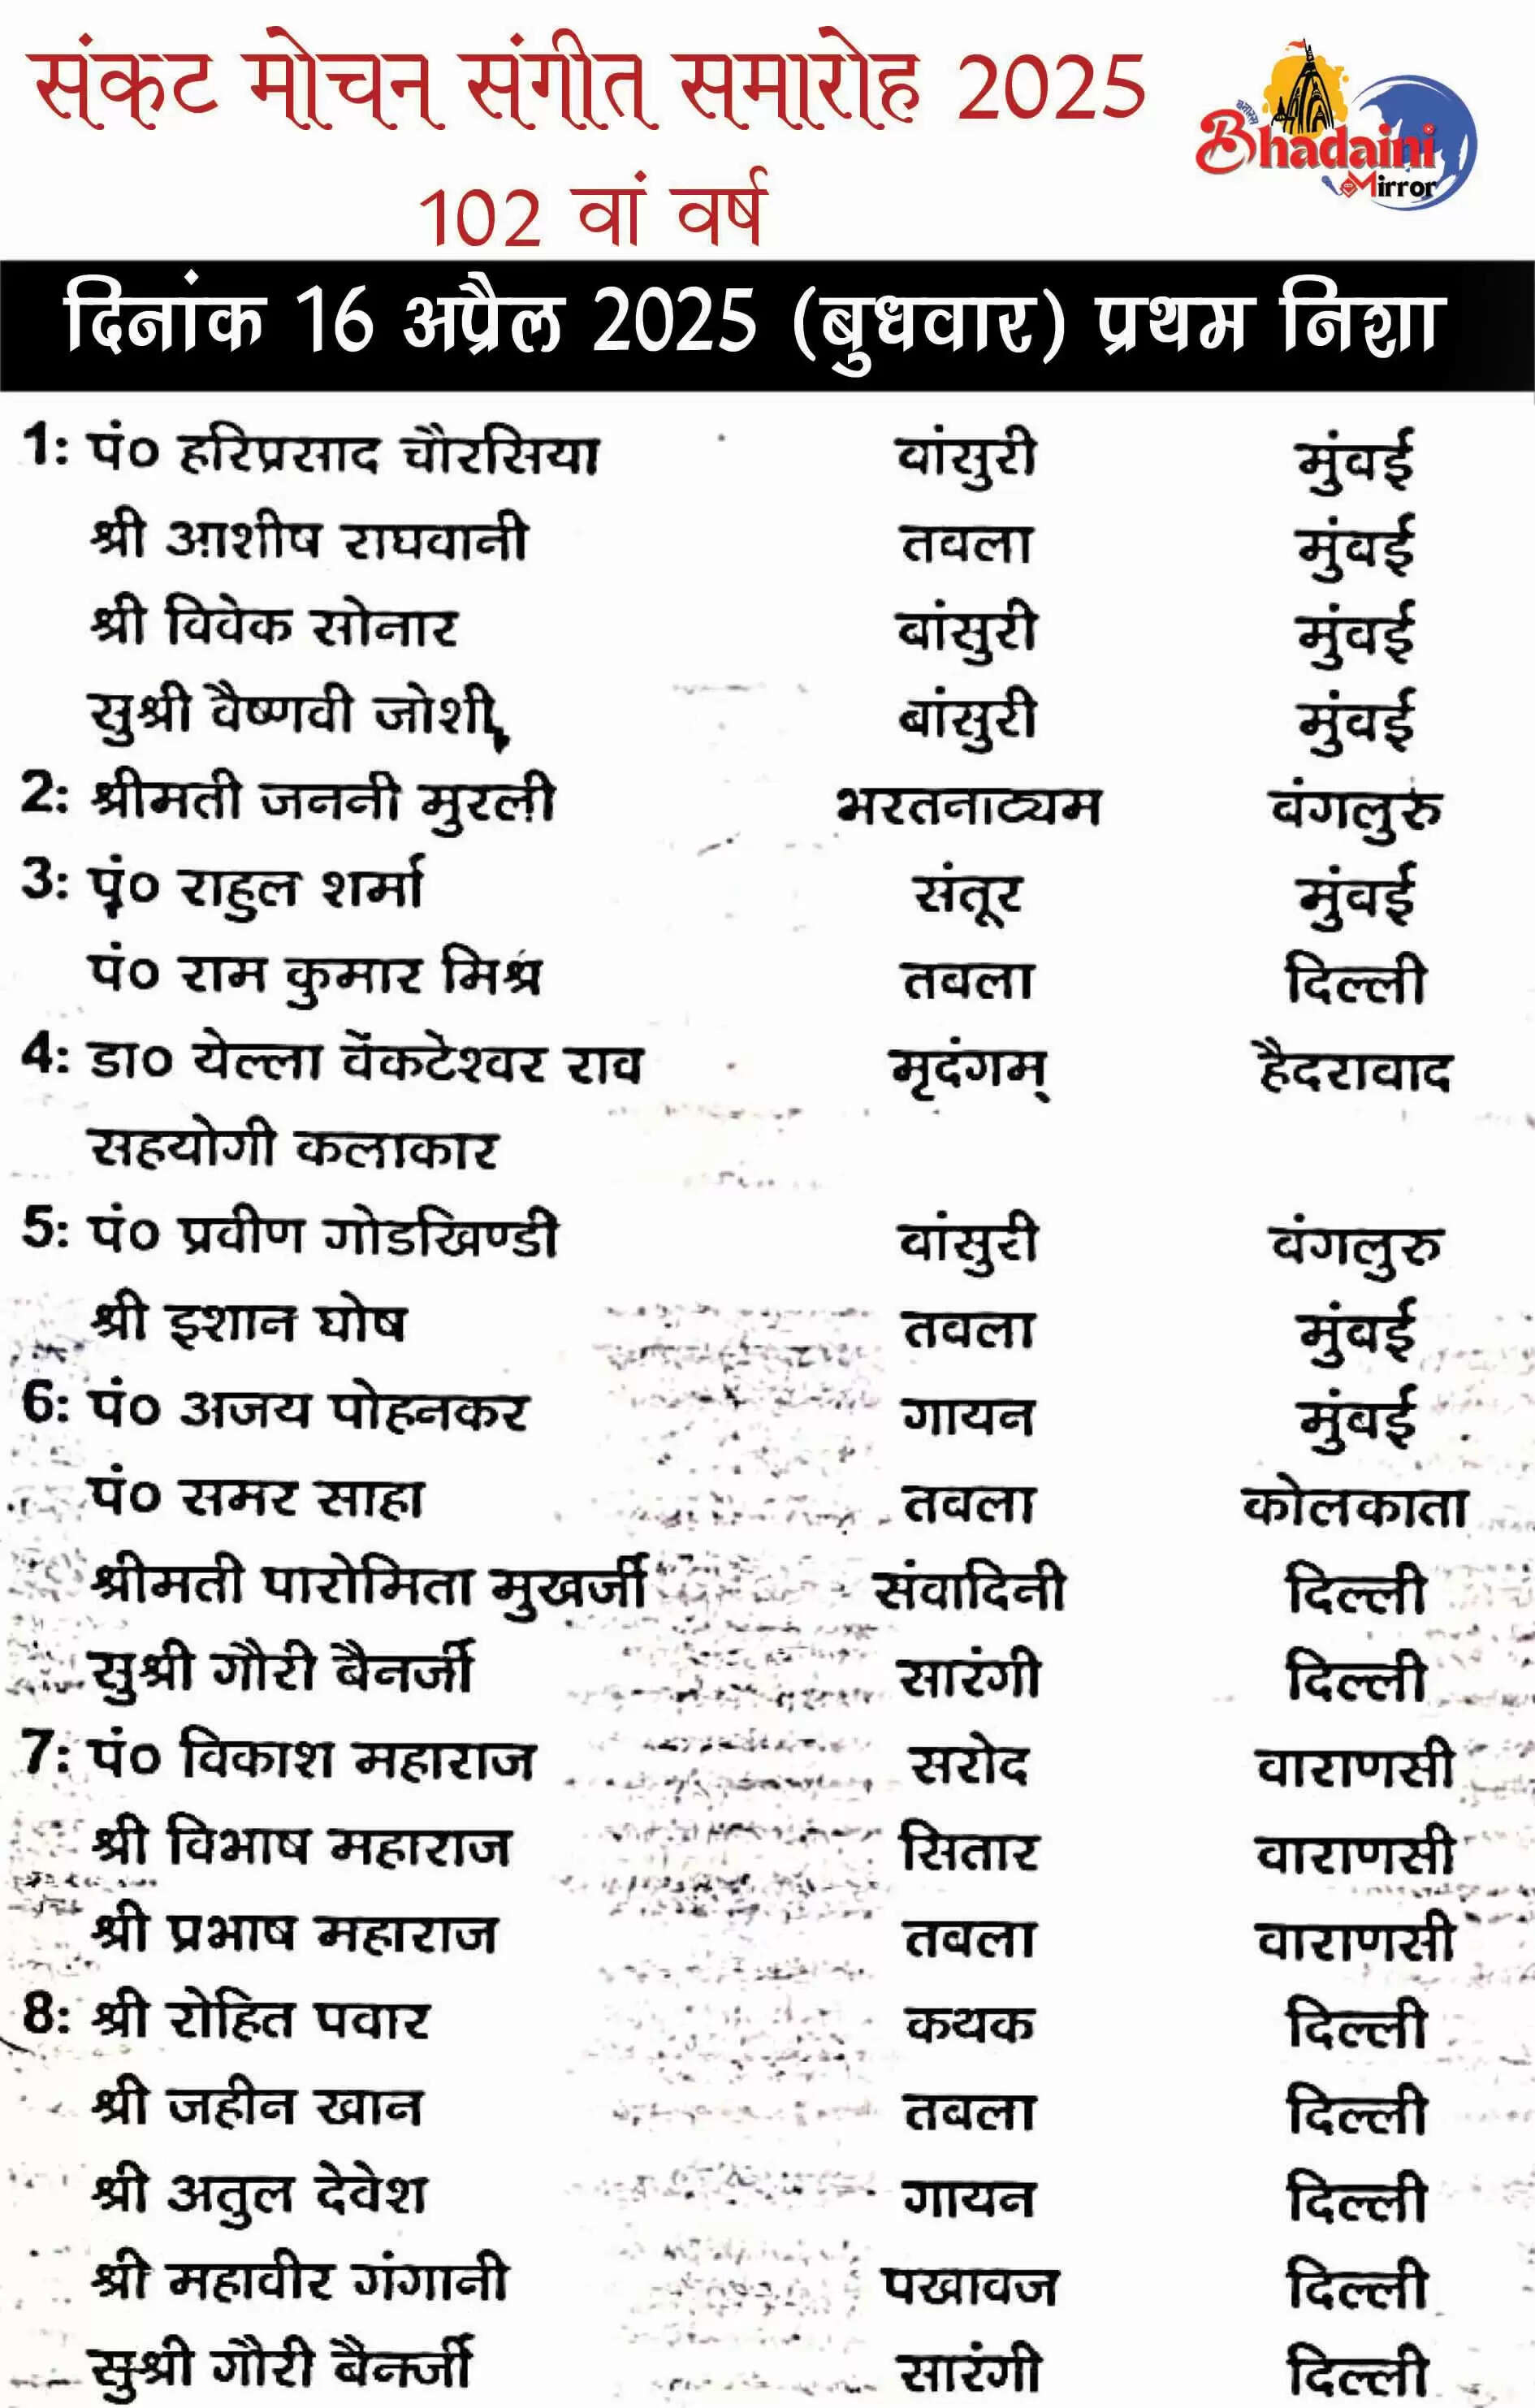 संकट मोचन संगीत समारोह 2025
102 वां वर्ष
बनारस
Bhadaini
Mirror
दिनांक 16 अप्रैल 2025 (बुधवार) प्रथम निशा
1: पं० हरिप्रसाद चौरसिया वांसुरी मुंवई
श्री आशीष राघवानी तवला मुंवई
श्री विवेक सोनार बांसुरी मुंवई
सुश्री वैष्णवी जोशी बांसुरी मुंवई
2: श्रीमती जननी मुरली भरतनाट्यम वंगलुरु
3: पं० राहुल शर्मा संतूर मुंवई
पं० राम कुमार मिश्र तवला दिल्ली
4: डा० येल्ला वेंकटेश्वर राव मृदंगम् हैदरावाद
सहयोगी कलाकार
5: पं० प्रवीण गोडखिण्डी वांसुरी वंगलुरु
श्री इशान घोष तवला मुंवई
6: पं० अजय पोहनकर गायन मुंवई
पं० समर साहा तवला कोलकाता
श्रीमती पारोमिता मुखर्जी संवादिनी दिल्ली
सुश्री गौरी बैनर्जी सारंगी दिल्ली
7: पं० विकाश महाराज सरोद वाराणसी
श्री विभाष महाराज सितार वाराणसी
श्री प्रभाष महाराज तवला वाराणसी
8: श्री रोहित पवार कथक दिल्ली
श्री जहीन खान तवला दिल्ली
श्री अतुल देवेश गायन दिल्ली
श्री महावीर गंगानी पखावज दिल्ली
सुश्री गौरी बैनर्जी सारंगी दिल्ली